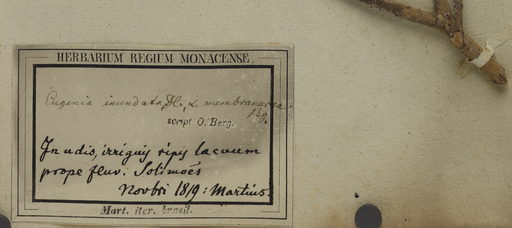 HERBARIUM REGIUM MONACENSE.
Eugenia inundata, DC., α membranacea
Bg.
script O. Berg.
In udis, irriguis ripis lacuum
prope fluv. Solimoës
Novbri 1819: Martius.
Mart. iter. brasil.